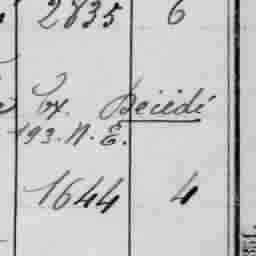 2835 6
tx. Deiédi
193. N. E.
1644 4